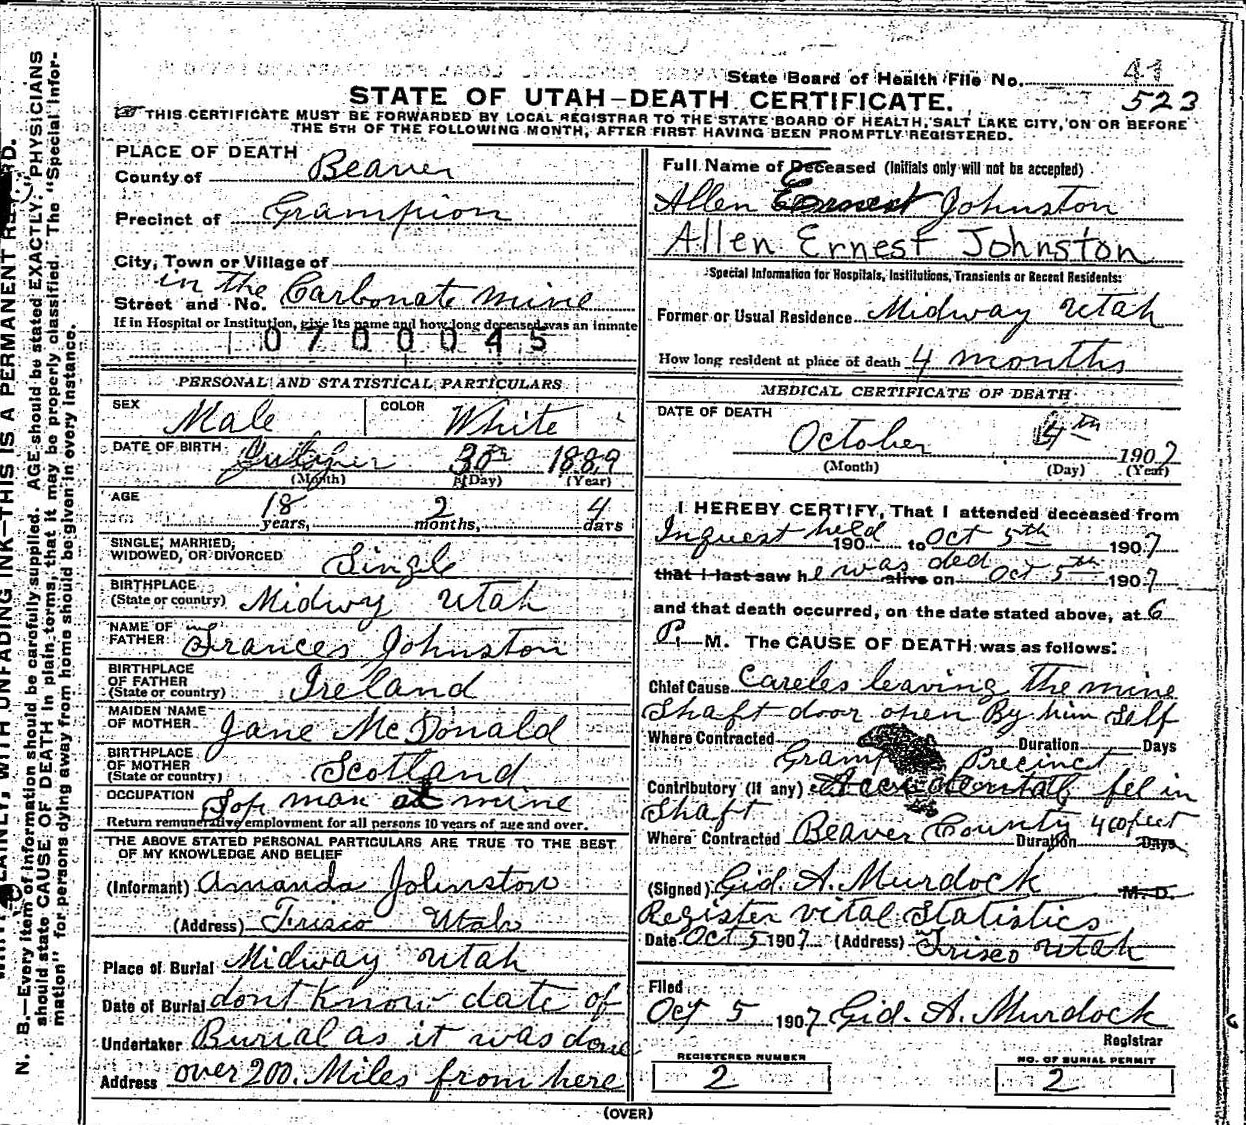 State Board of Health File No. 41
523
STATE OF UTAH—DEATH CERTIFICATE.
THIS CERTIFICATE MUST BE FORWARDED BY LOCAL REGISTRAR TO THE STATE BOARD OF HEALTH, SALT LAKE CITY, ON OR BEFORE
THE 5TH OF THE FOLLOWING MONTH, AFTER FIRST HAVING BEEN PROMPTLY REGISTERED.
PLACE OF DEATH
County of Beaver
Precinct of Grampion
City, Town or Village of
in the
Street and No. Carbonate mine
If in Hospital or Institution, give its name and how long deceased was an inmate
0700045
PERSONAL AND STATISTICAL PARTICULARS
SEX Male COLOR White
DATE OF BIRTH 30th 1889
(Month) (Day) (Year)
AGE 18 years, 2 months, 4 days
SINGLE, MARRIED,
WIDOWED, OR DIVORCED Single
BIRTHPLACE
(State or country) Midwy Utah
NAME OF
FATHER Frances Johnston
BIRTHPLACE
OF FATHER
(State or country) Ireland
MAIDEN NAME
OF MOTHER Jane McDonald
BIRTHPLACE
OF MOTHER
(State or country) Scotland
OCCUPATION Top man at mine
Return remunerative employment for all persons 10 years of age and over.
THE ABOVE STATED PERSONAL PARTICULARS ARE TRUE TO THE BEST
OF MY KNOWLEDGE AND BELIEF
(Informant) Amanda Johnston
(Address) Frisco Utah
Place of Burial Midway Utah
Date of Burial dont know date of
Undertaker Burial as it was done
Address over 200. Miles from here
Full Name of Deceased (Initials only will not be accepted)
Allen Ernest Johnston
Allen Ernest Johnston
Special Information for Hospitals, Institutions, Transients or Recent Residents:
Former or Usual Residence Midway Utah
How long resident at place of death 4 months
MEDICAL CERTIFICATE OF DEATH
DATE OF DEATH
October 4th 1907
(Month) (Day) (Year)
I HEREBY CERTIFY, That I attended deceased from
Inquest held 190 to Oct 5th 1907
that I last saw he was ded alive on Oct 5th 1907
and that death occurred, on the date stated above, at 6
P. M. The CAUSE OF DEATH was as follows:
Chief Cause Careles leaving the mine
Shaft door open By him Self
Where Contracted Duration Days
Gramp Precinct
Contributory (if any) Accidental fel in
Shaft
Where Contracted Beaver County 400 feet Duration Days
(Signed) Gid. A. Murdock M. D.
Register vital Statistics
Date Oct 5 1907 (Address) Frisco Utah
Filed
Oct 5 1907 Gid. A. Murdock
Registrar
REGISTERED NUMBER
2
NO. OF BURIAL PERMIT
2
(OVER)
N. B.—Every item of information should be carefully supplied. AGE should be stated EXACTLY. PHYSICIANS
should state CAUSE OF DEATH in plain terms, that it may be properly classified. The "Special Infor-
mation" for persons dying away from home should be given in every instance.
WITH UNFADING INK—THIS IS A PERMANENT